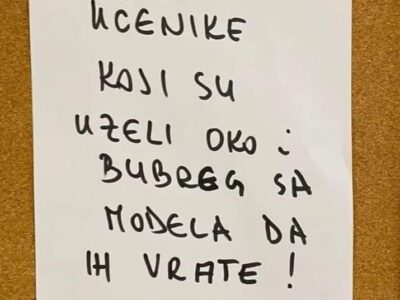 UČENIKE
KOJI SU
UZELI OKO i
BUBREG SA
MODELA DA
IH VRATE !